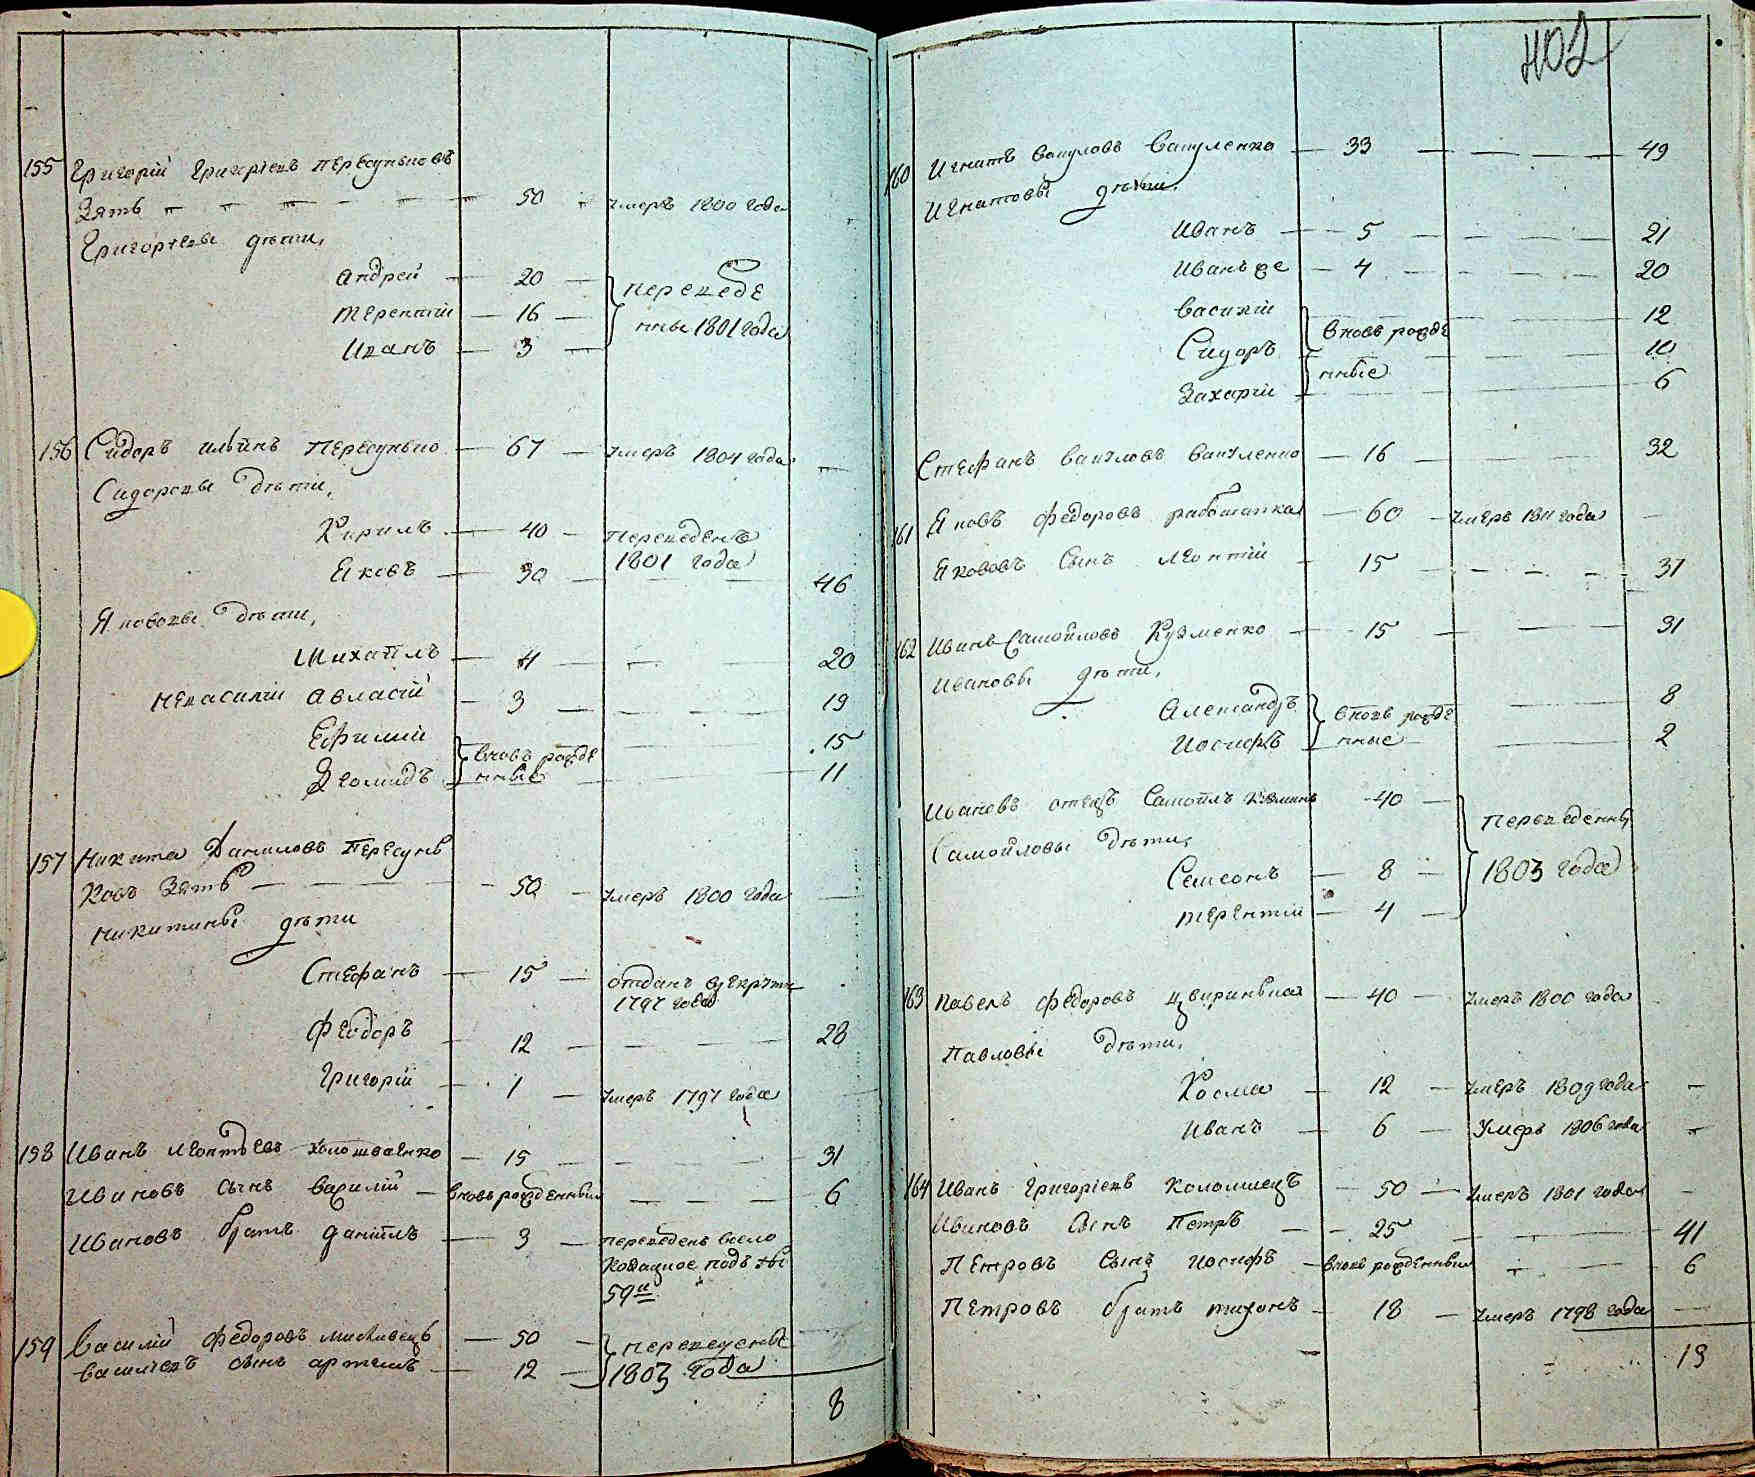 155 Григорій Григоріевъ Пересунковъ
Зять — 50 — умеръ 1800 года —
Григорьевы дѣти,
Андрей — 20 — переведе
Терентій — 16 — нны 1801 года
Иванъ — 3 —
156 Сидоръ Ильинъ Пересунько — 67 — умеръ 1804 года —
Сидоровы дѣти,
Кирилъ — 40 — переведенъ
1801 года
Яковъ — 30 — 46
Якововы дѣти,
Михайлъ — 4 — 20
Авласій — 3 — 19
Ефимій вновь рожде — 15
Діомидъ нные — 11
157 Никита Даниловъ Пересунь
ковъ Зять — 50 — умеръ 1800 года —
Никитины дѣти
Стефанъ — 15 — отданъ в рекруты
1797 года
Феодоръ — 12 — 28
Григорій — 1 — умеръ 1797 года
198 Иванъ Леонтьевъ — 15 — 31
Ивановъ сынъ Василій — вновь рожденный — 6
Ивановъ братъ Даніилъ — 3 — переведенъ всело
подъ №
59й
159 Василій Федоровъ Мисливецъ — 50 — переведены
Васильевъ сынъ Артемъ — 12 — 1803 года
8
402
160 Игнатъ Вакуловъ Вакуленко — 33 — 49
Игнатовы дѣти,
Иванъ — 5 — 21
Иванъ же — 4 — 20
Василій — 12
вновь рожде
Сидоръ — 10
нные
Захарій — 6
Стефанъ Вакуловъ Вакуленко — 16 — 32
161 Яковъ Федоровъ работапка — 60 — умеръ 1811 года —
Якововъ сынъ Леонтій — 15 — 31
162 Иванъ Самойловъ Кузменко — 15 — 31
Ивановы дѣти,
Александръ вновь рожде — 8
Иосифъ нные — 2
Ивановъ отецъ Самойлъ — 40 — переведены
Самойловы дѣти,
Самсонъ — 8 — 1803 года
Терентій — 4 —
163 Павелъ Федоровъ Цвиринька — 40 — умеръ 1800 года
Павловы дѣти,
Косма — 12 — умеръ 1809 года —
Иванъ — 6 — умеръ 1806 года —
164 Иванъ Григоріевъ Коломиецъ — 50 — умеръ 1801 года —
Ивановъ сынъ Петръ — 25 — 41
Петровъ сынъ Иосифъ — вновь рожденный — 6
Петровъ братъ Тихонъ — 18 — умеръ 1798 года —
13